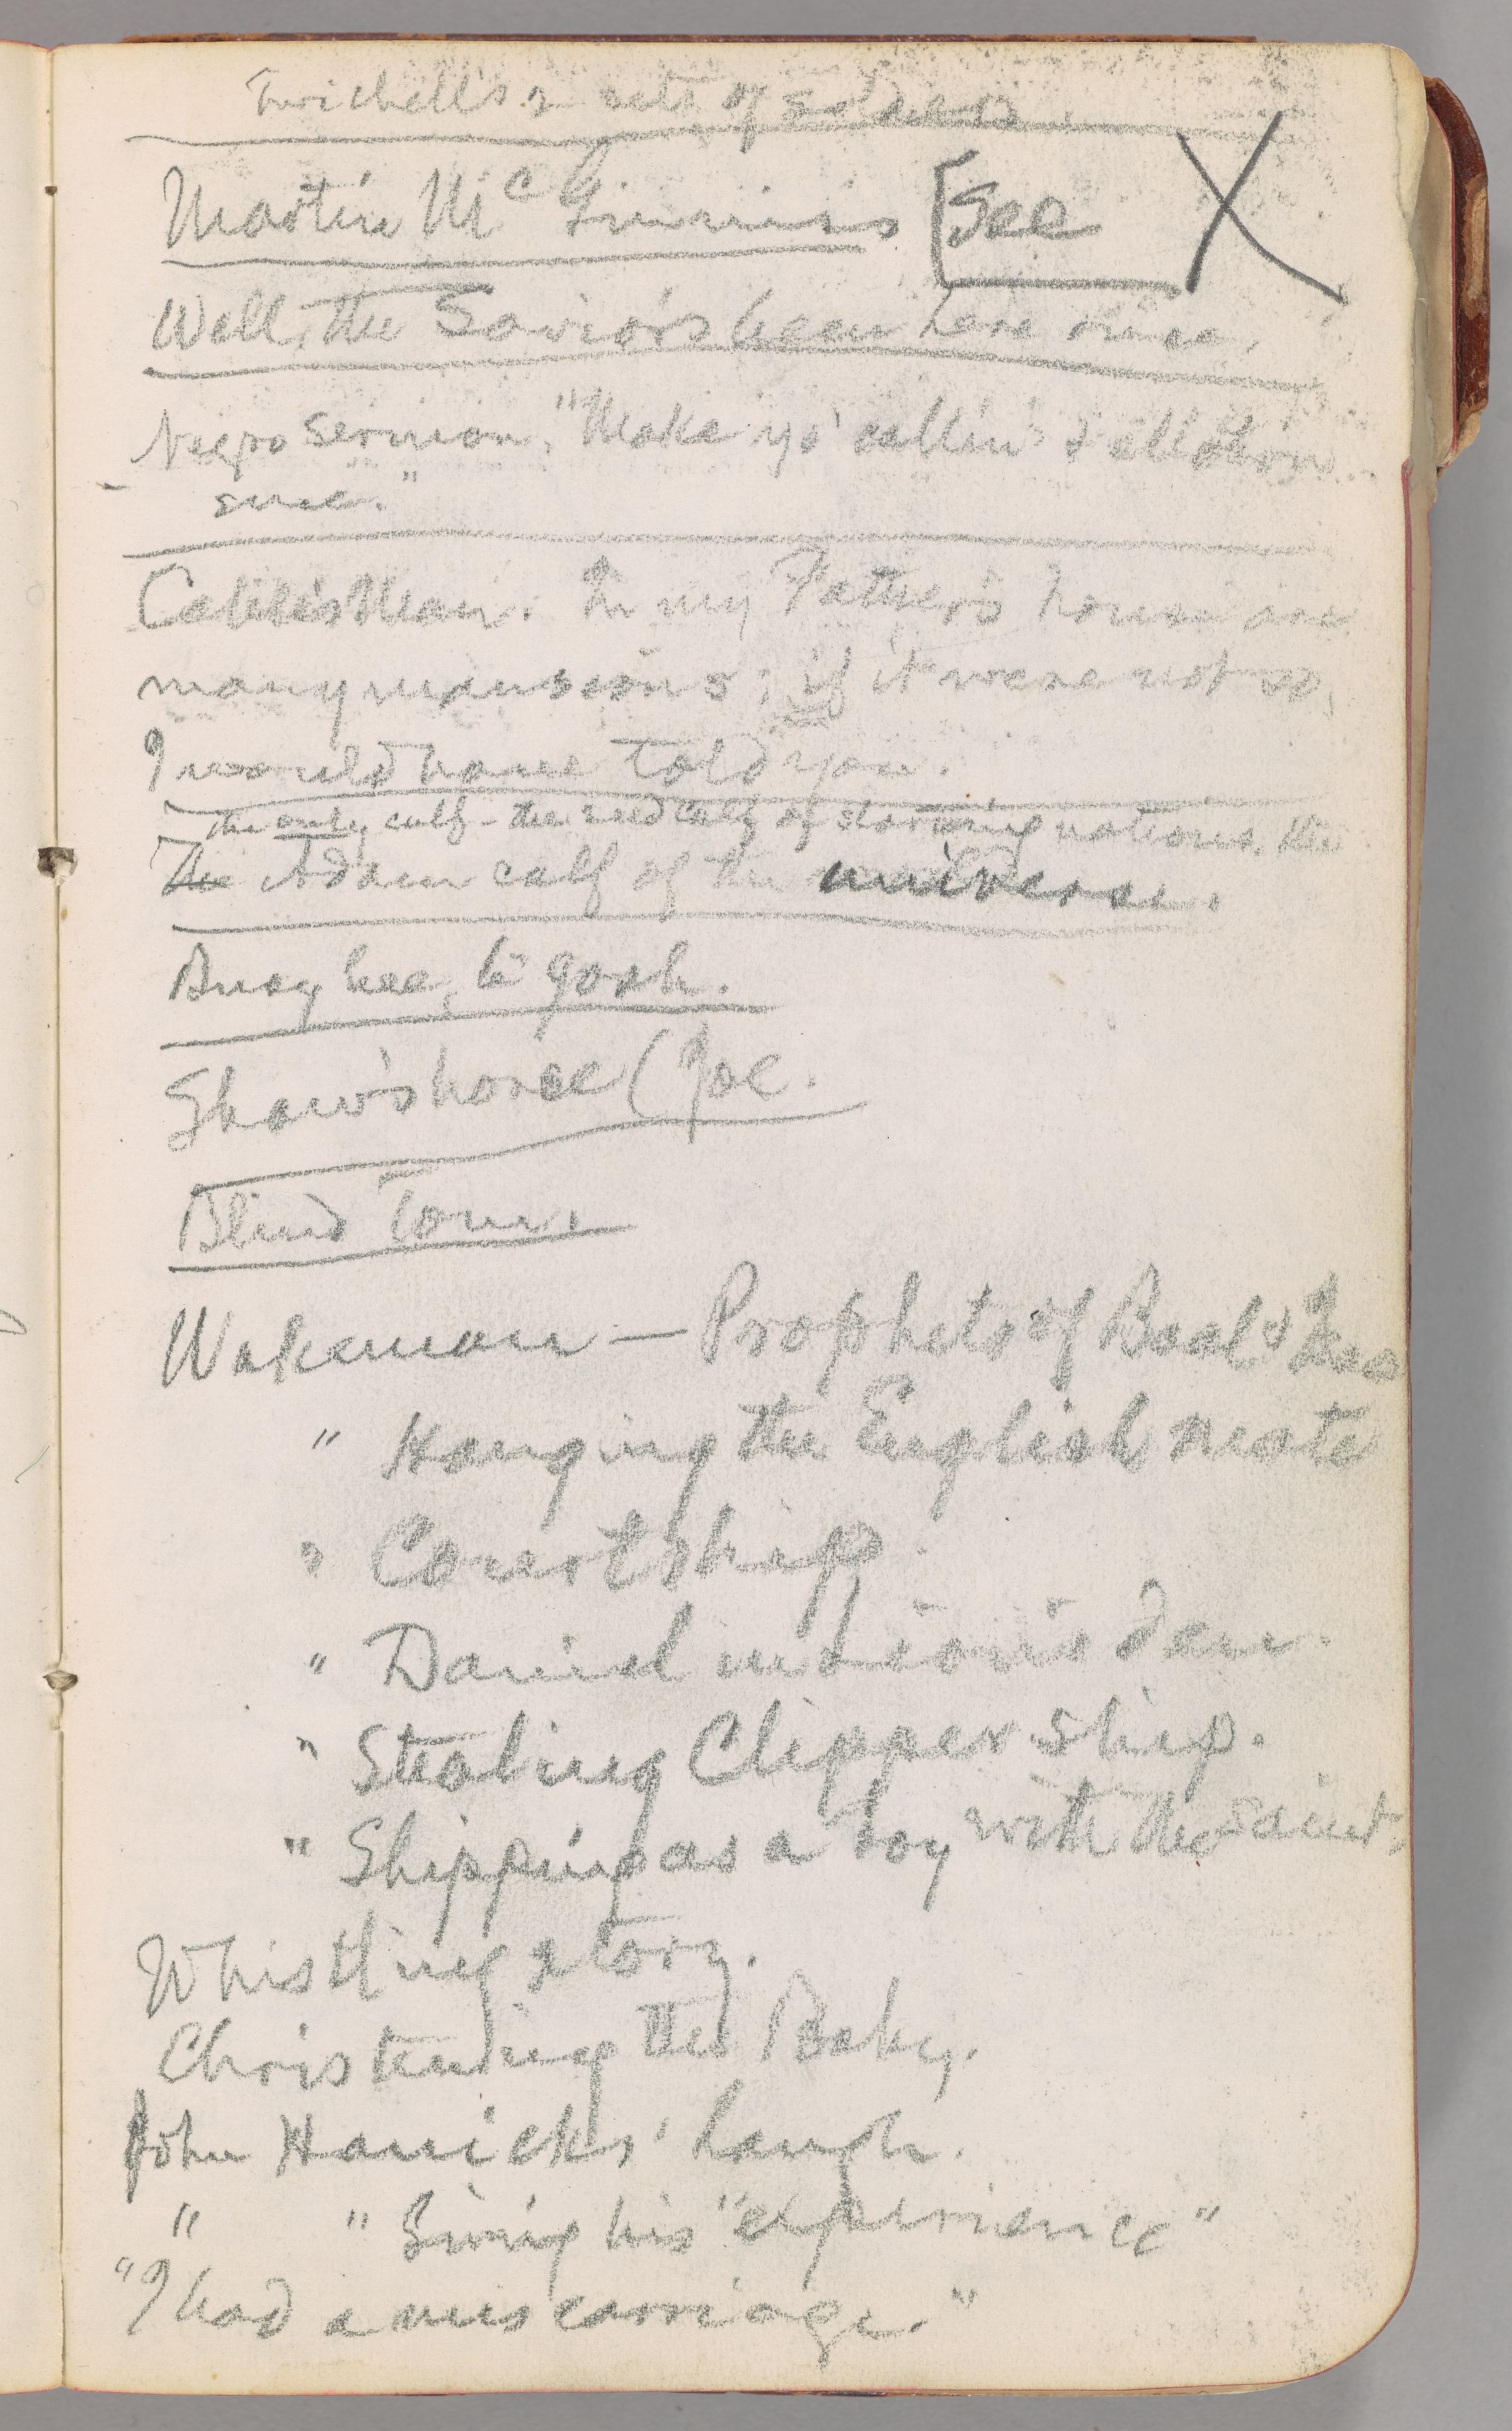 Twichell's  of
Martin McGinnis [See X
Well, the Savior's been here since.
Negro sermon, "Make yo' callin' & allotion
sure."
Callisthan: In my Father's house are
many mansions; if it were not so,
I would have told you.
the only calf – the red calf of  nations, the
The Adam calf of the universe.
Busy bee, b' gosh.
Shaw's horse (Joe.
Blind Tom.
Wakeman — Prophets of Baal &
" Hanging the English mate
" Courtship.
" Daniel in Lion's den.
" Stealing Clipper ship.
" Shipping as a boy with the saint.
Whistling story.
Christening the Baby.
John Hanicks' laugh.
" " Giving his "experience"
"I had a miscarriage."